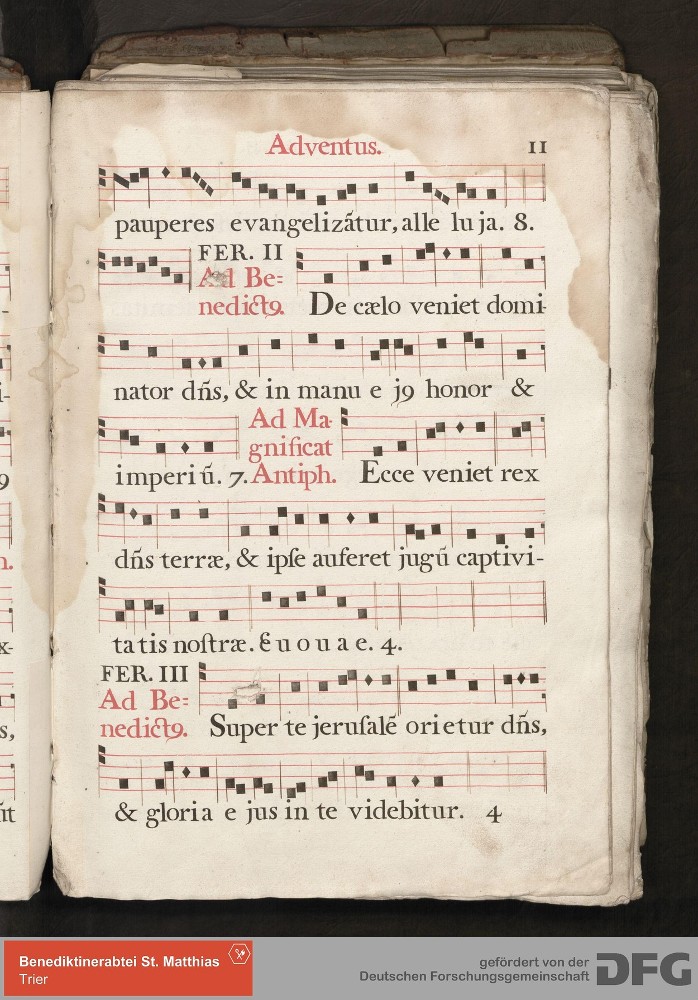 Adventus. 11
pauperes evangelizãtur, alle luja. 8.
FER. II
Ad Be=
nedictꝯ. De cælo veniet domi-
nator dn̄s, & in manu e jꝯ honor &
Ad Ma-
gnificat
imperiū. 7. Antiph. Ecce veniet rex
dn̄s terræ, & ipſe auferet jugū captivi-
tatis noſtræ. Euouae. 4.
FER. III
Ad Be=
nedictꝯ. Super te jeruſalē orietur dn̄s,
& gloria ejus in te videbitur. 4
Benediktinerabtei St. Matthias
Trier
gefördert von der
Deutschen Forschungsgemeinschaft DFG